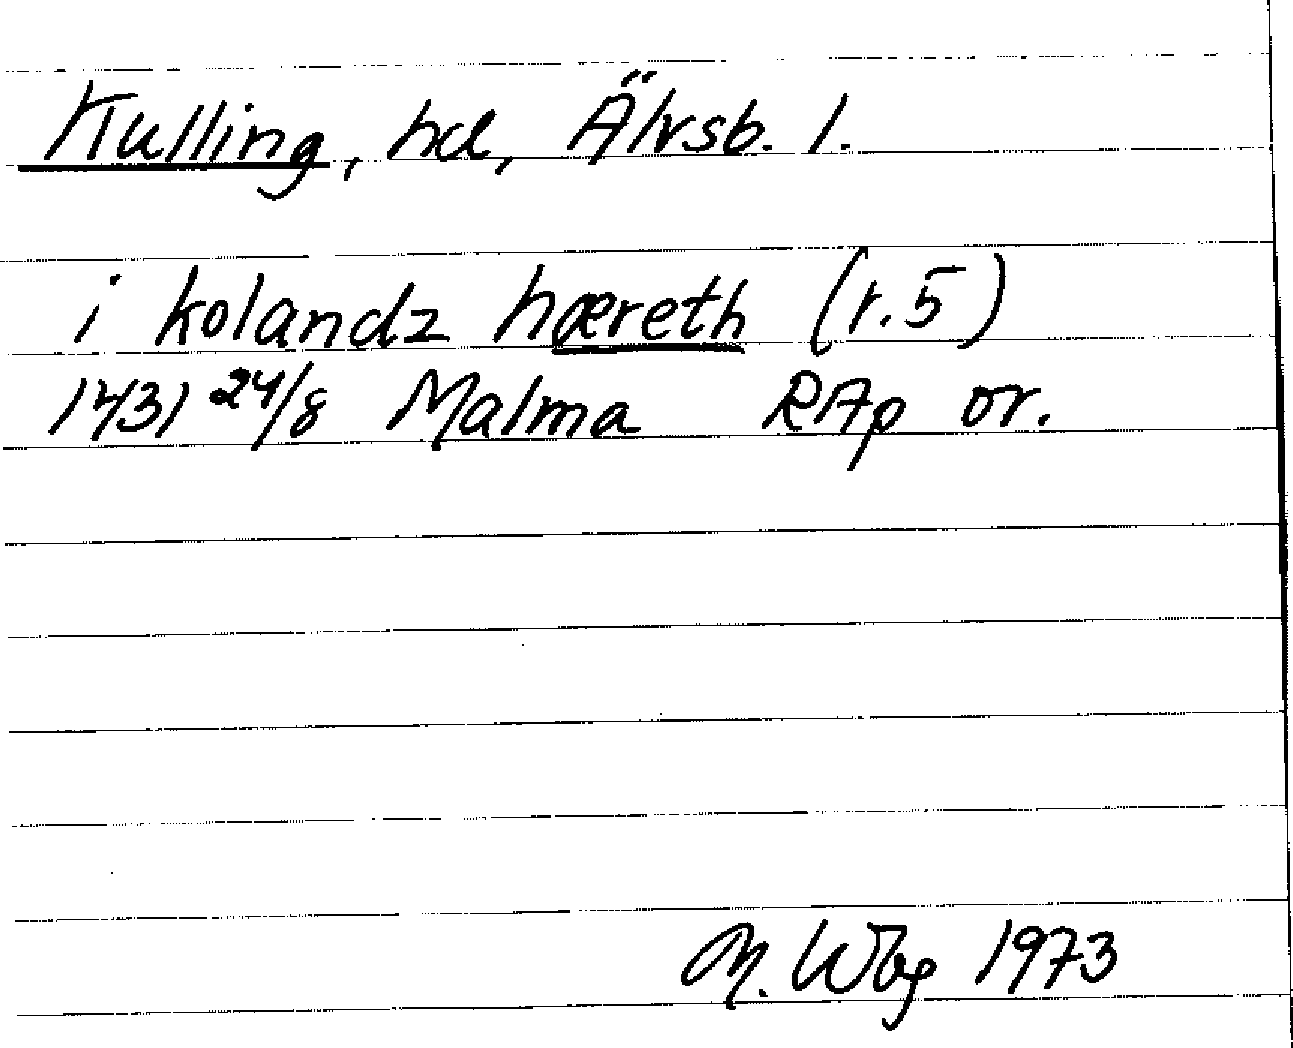 Kulling, hd, Älvsb. l.
i kolandz hæreth (r.5)
1431 24/8 Malma RAp or.
M. Wbg 1973